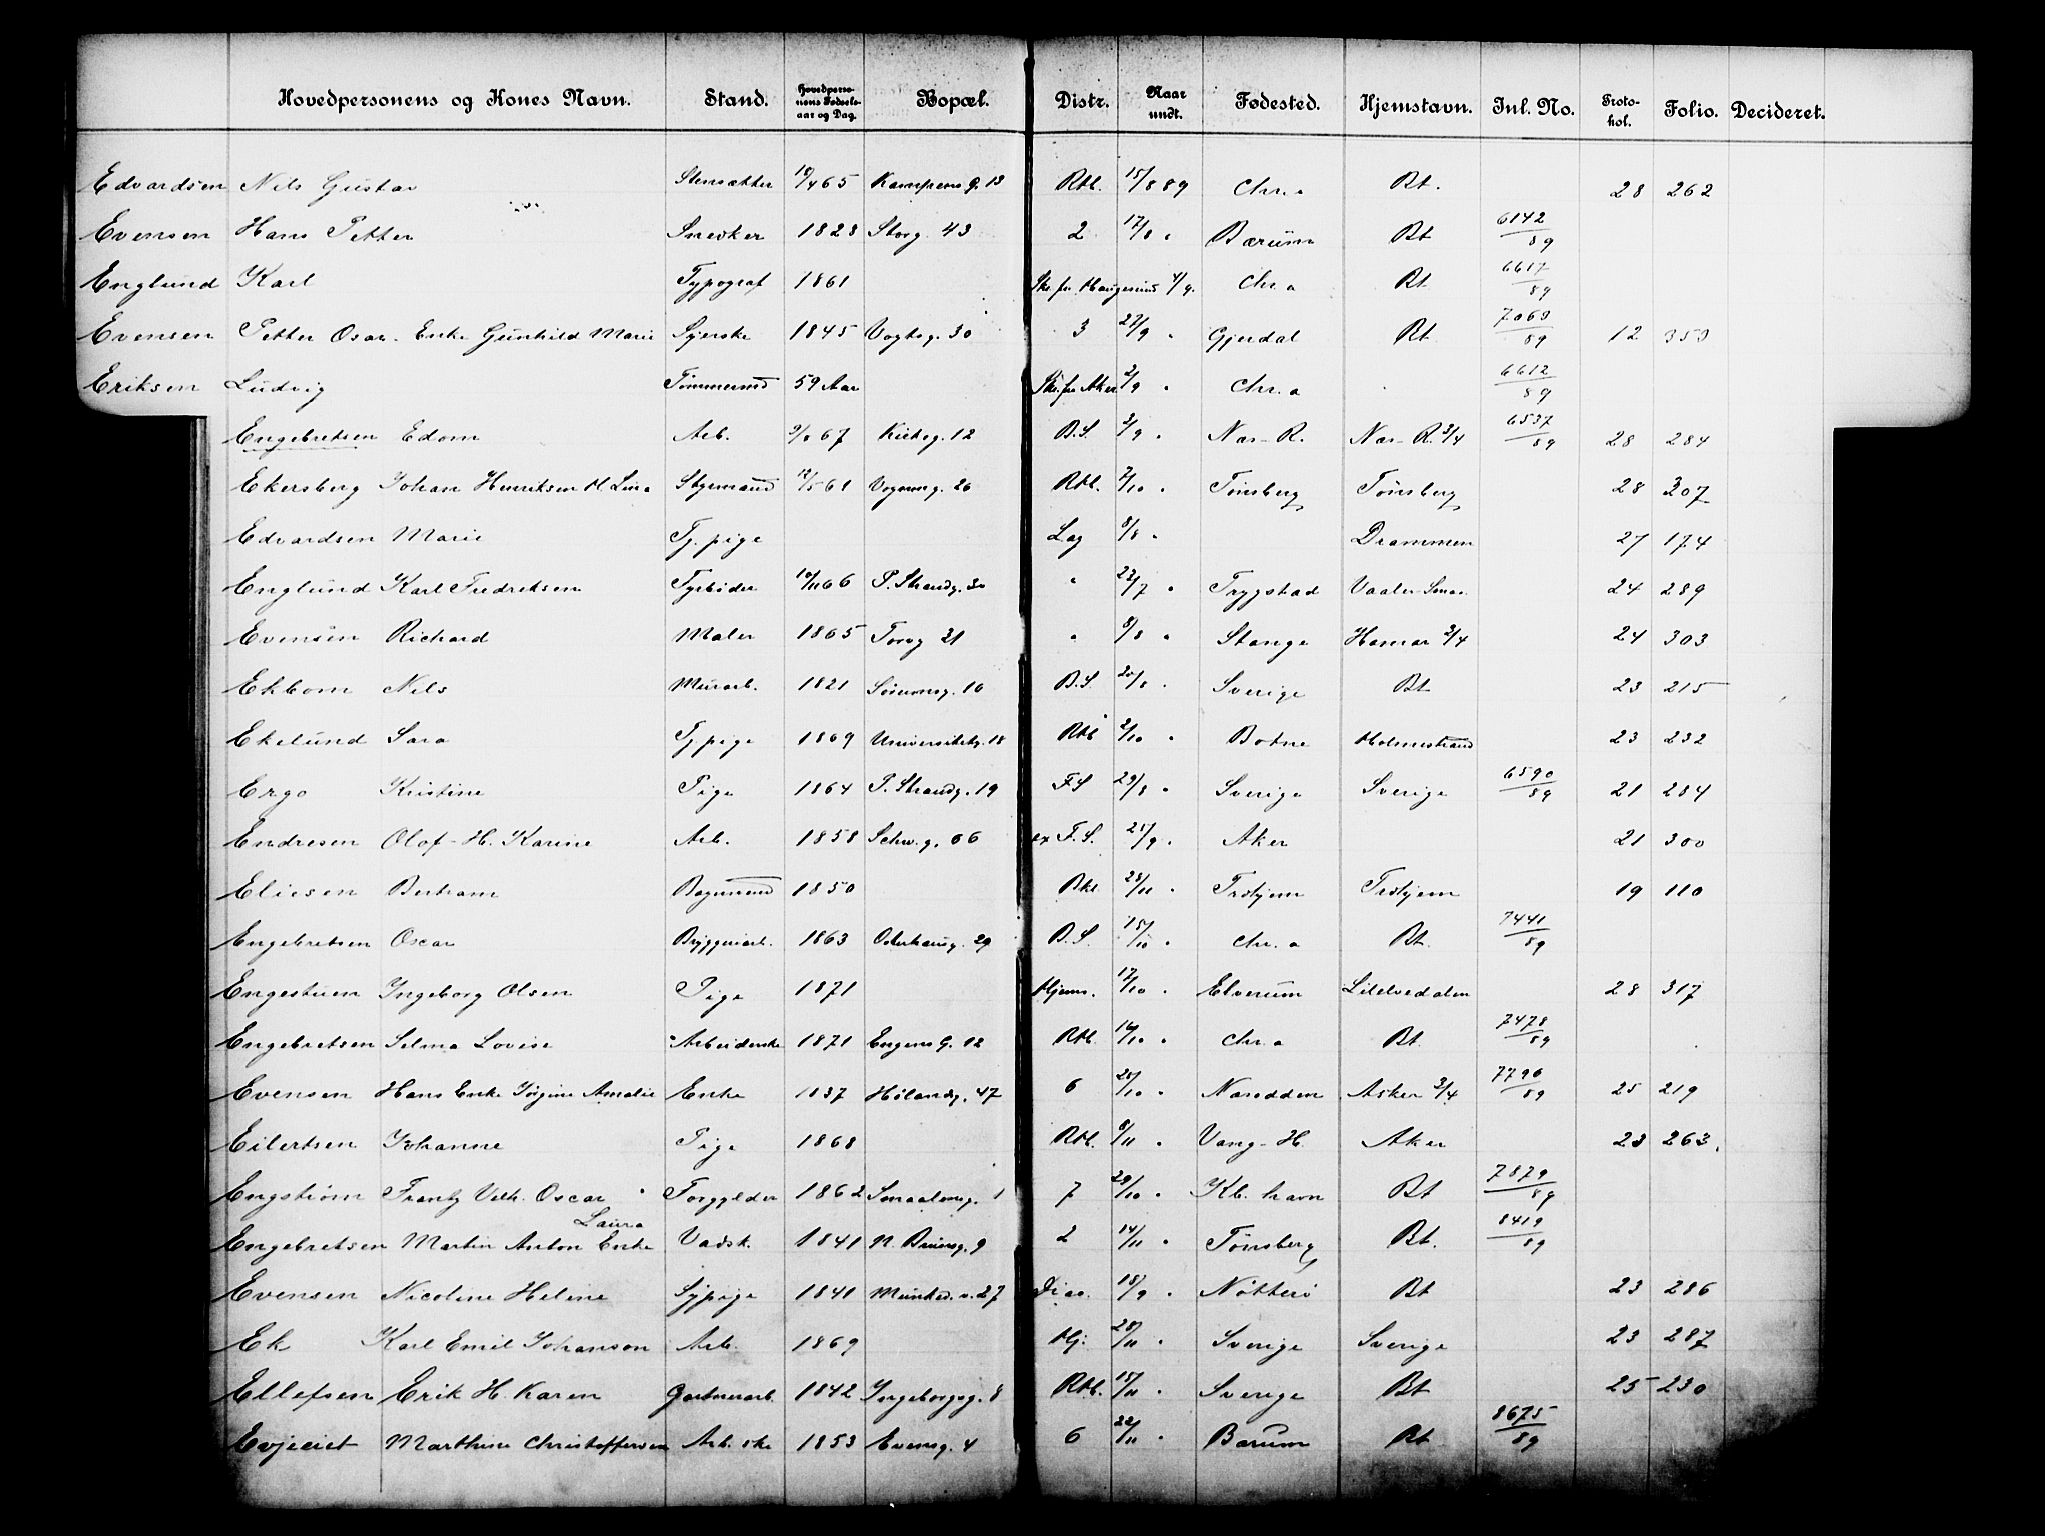 Hovedpersonens og Kones Navn. Stand. Hovedpersonens Fødsels-aar og Dag. Bopæl. Distr. Naar undt. Fødested. Hjemstavn. Inl. No. Protokol. Folio. Decideret.
Edvardsen Nils Gustav Stensætter 65 Kampens g. 13 Rtl. 15/8 89 Chr.a Bt. 28 262
Evensen Hans Petter Snedker 1823 Storg. 43 2 17/8 " Bærum Bt 6142/89
Englund Karl Typograf 1861 Skr. fra Haugesund 4/9. Chr.a Bt 6617/89
Evensen Petter Osar. Enke Gunhild Marie Syerske 1845 Vogtsg. 30 3 23/9 " Gjerdal Bt 7069/89 12 353
Eriksen Ludvig Tømmermd 59 Aar Skr. fra Aker 2/9 " Chr.a 6612/89
Engebretsen Edom Arb. 67 12 B.S. 3/9 " Næs-R. Næs-R. 3/4 6537/89 28 284
Ekersberg Johan Henriksen H Lina Styrmand 61 Vognmg. 26 Rtl. 7/10 " Tønsberg Tønsberg 28 307
Edvardsen Marie Tj. pige Lag 8/8 " Drammen 27 174
Englund Karl Fredriksen Fyrbøder 10/11 66 P. Strandg. 30 " 23/7 " Trygstad Vaaler Smaa. 24 289
Evensen Richard Maler 1865 Torvg 21 " 8/8 " Stange Hamar 3/4 24 303
Ekbom Nils Murarb. 1821 10 B.S. 20/8 " Sverige Bt 23 215
Ekelund Sara Tj pige 1869 Universitetsg. 18 Rtl 2/10 " Botne Holmestrand 23 232
Ergo Kristine Pige 1864 P. Strandg. 19 F.S 29/8 " Sverige Sverige 6590/89 21 284
Endresen Olof - H. Karine Arb. 1858 Schw. g. 66 ex F. S. 21/9 " Aker 21 300
Eliesen Bertram Bogmand 1850 Bkl 28/11 " Trdhjem Trdhjem 19 110
Engebretsen Oscar Bryggeriarb. 1863 Osterhausg. 29 B.S. 15/10 " Chr.a Bt. 7441/89
Engestuen Ingeborg Olsen Pige 1871 Hjems. 17/10 " Elverum Lillelvedalen 28 317
Engebretsen Selma Lovise Arbeiderske 1871 Engens g. 12 Rtl. 16/10 " Chr.a Bt. 7478/89
Evensen Hans Enke Jørgine Amalie Enke 1837 Hølandsg. 47 6 25/10 " Næsodden Asker 3/4 7796/89 25 219
Eilertsen Johanne Pige 1868 Rtl. 9/11 " Vang-H. Aker 23 263.
Engstrøm Frantz Vilh. Oscar Forgylder 1862 Smaalensg. 1 7 29/10 " Kb. havn Bt 7879/89
Engebretsen Martin Anton Enke Laura Vadsk. 1841 N. Brunsg. 9 2 14/11 " Tønsberg Bt. 8419/89
Evensen Nicoline Heline Sypige 1841 Munked. v. 27 Diac. 18/9 " Nøtterø Bt 23 286
Ek Karl Emil Johanson Arb. 1869 Hj. 28/11 " Sverige Sverige 23 287
Ellefsen Erik H. Karen Gartnerarb. 1842 Ingeborgsg. 8 Rtl. 15/11 " Sverige Bt 25 230
Evjeeiet Marthine Christoffersen Arb. ske 1853 Evensg. 4 6 22/11 " Bærum Bt 8675/89